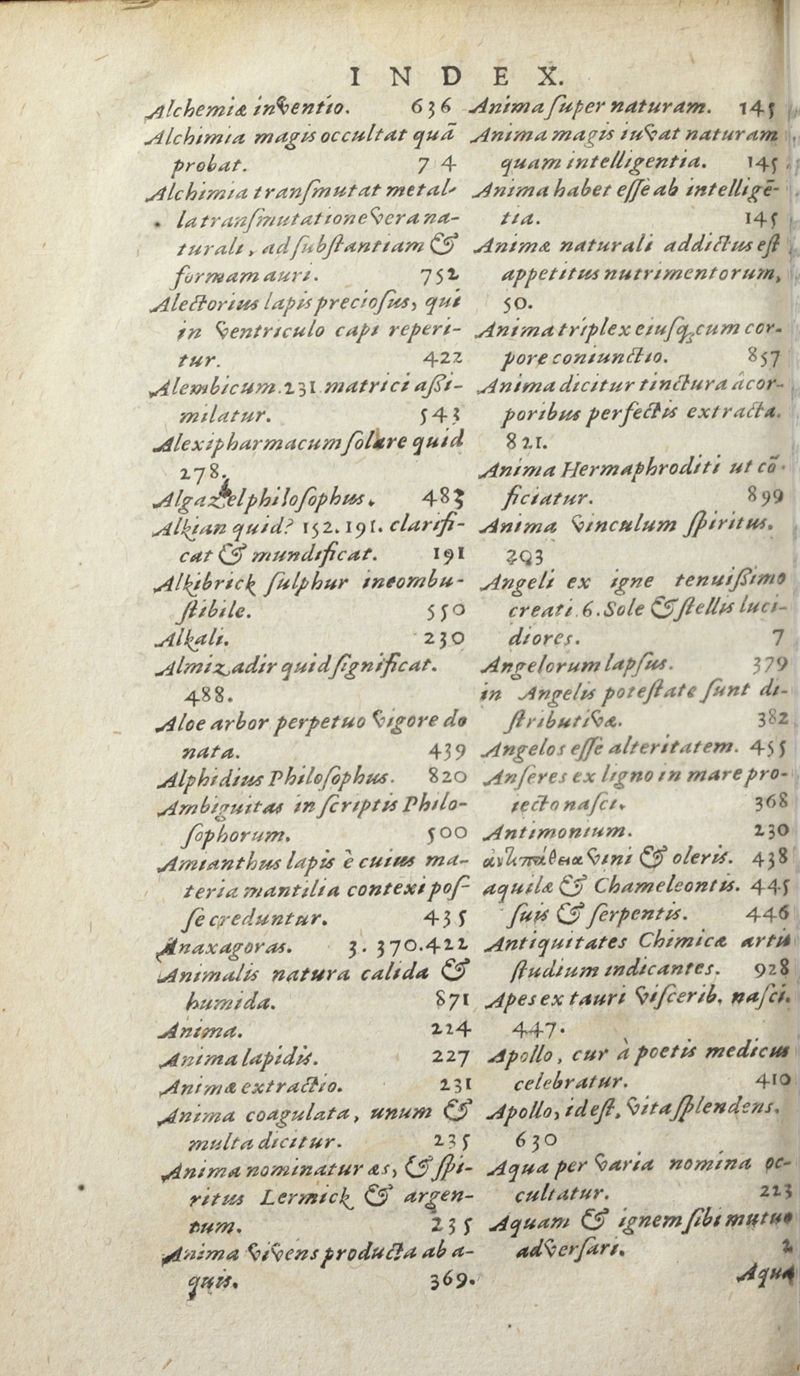 INDEX.
Alchemiæ inventio. 636
Alchimia magis occultat quā
probat. 7 4
Alchimia transmutat metal-
la transmutatione vera na-
turali, ad substantiam &
formam auri. 752
Alectorius lapis preciosus, qui
in ventriculo capi reperi-
tur. 422
Alembicum. 231 matrici aßi-
milatur. 543
Alexipharmacum solare quid
278.
Algazel philosophus. 483
Alkian quid? 152. 191. clarifi-
cat & mundificat. 191
Alkibrick sulphur incombu-
stibile. 550
Alkali. 230
Almizadir quid significat.
488.
Aloe arbor perpetuo vigore do
nata. 439
Alphidius Philosophus. 820
Ambiguitas in scriptis Philo-
sophorum. 500
Amianthus lapis è cuius ma-
teria mantilia contexi pos-
se creduntur. 435
Anaxagoras. 3. 370. 422
Animalis natura calida &
humida. 871
Anima. 224
Anima lapidis. 227
Animæ extractio. 231
Anima coagulata, unum &
multa dicitur. 235
Anima nominatur æs, & spi-
ritus Lermick & argen-
tum. 235
Anima vivens producta ab a-
quis. 369.
Anima super naturam. 145
Anima magis iuvat naturam
quam intelligentia. 145
Anima habet esse ab intelligē-
tia. 145
Animæ naturali addictus est
appetitus nutrimentorum,
50.
Anima triplex eiusq; cum cor-
pore coniunctio. 857
Anima dicitur tinctura à cor-
poribus perfectis extracta.
821.
Anima Hermaphroditi ut cō-
ficiatur. 899
Anima vinculum spiritus.
393
Angeli ex igne tenuißimo
creati. 6. Sole & stellis luci-
diores. 7
Angelorum lapsus. 379
in Angelis potestate sunt di-
stributivæ. 382
Angelos esse alteritatem. 455
Anseres ex ligno in mare pro-
iecto nasci. 368
Antimonium. 230
vini & oleris. 438
aquilæ & Chameleontis. 445
suis & serpentis. 446
Antiquitates Chimicæ artis
studium indicantes. 928
Apes ex tauri viscerib. nasci.
447.
Apollo, cur à poetis medicus
celebratur. 410
Apollo, id est, vita splendens.
630
Aqua per varia nomina oc-
cultatur. 223
Aquam & ignem sibi mutuo
adversari. 2
Aqua